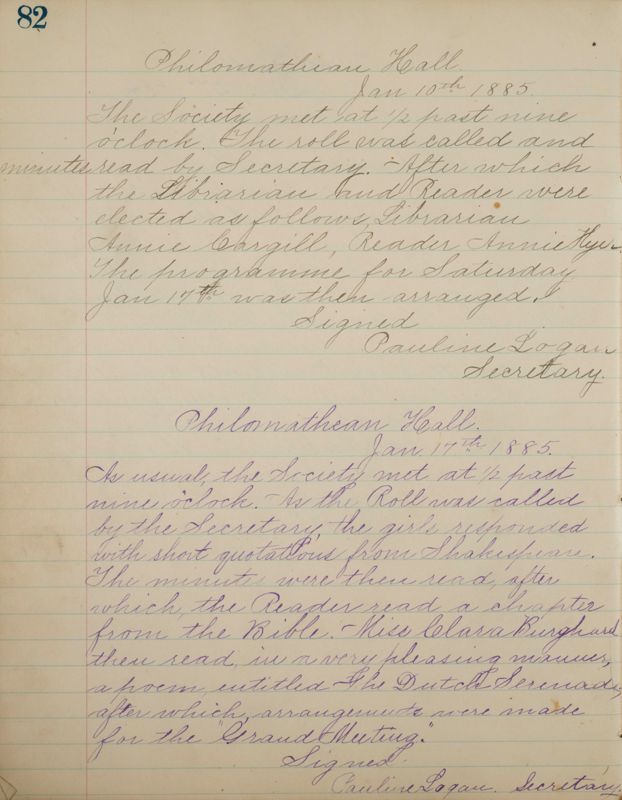 82
Philomathean Hall.
Jan 10th 1885.
The Society met at ½ past nine
o'clock. The roll was called and
minutes read by Secretary. After which
the Librarian and Reader were
elected as follows, Librarian
Annie Cargill, Reader Annie Hyer.
The programme for Saturday
Jan 17th was then arranged.
Signed
Pauline Logan
Secretary.
Philomathean Hall.
Jan 17th 1885.
As usual, the Society met at ½ past
nine o'clock. As the Roll was called
by the Secretary, the girls responded
with short quotations from Shakespeare.
The minutes were then read, after
which, the Reader read a chapter
from the Bible. Miss Clara Burghard
then read, in a very pleasing manner,
a poem, entitled The Dutch Serenade,
after which, arrangements were made
for the "Grand Meeting."
Signed
Pauline Logan. Secretary.